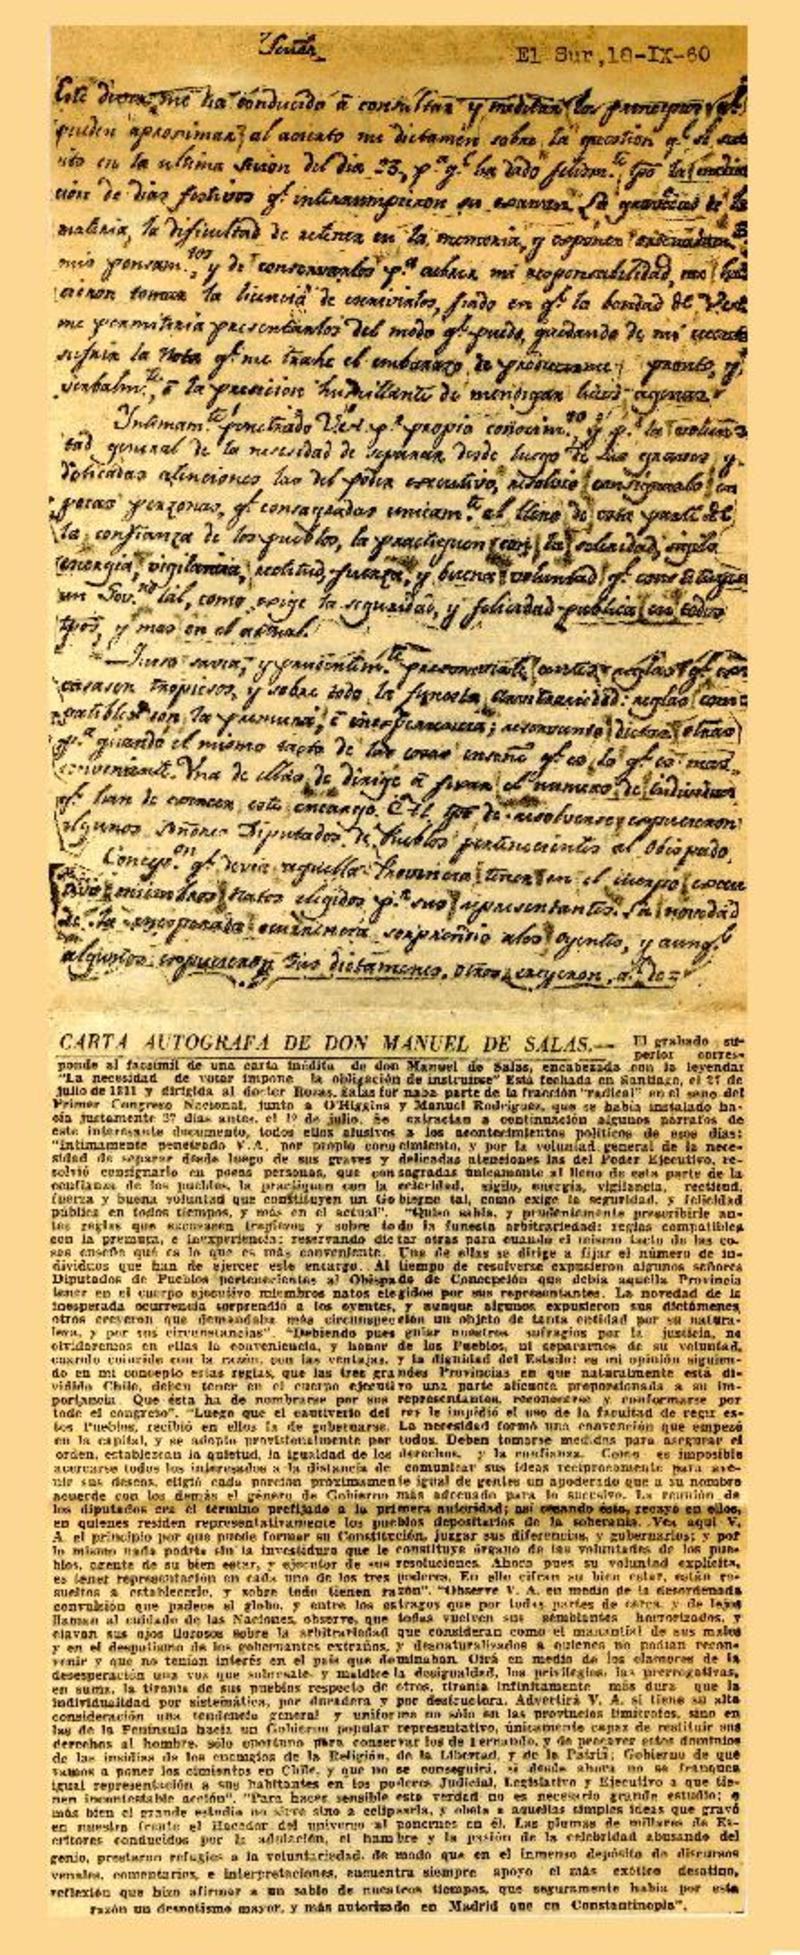 Señor
El Sur, 18-IX-60
me ha conducido á consultar y meditar los principios
pueden aproximar al acierto mi dictamen sobre la question q.e se
en la ultima sesion del dia 23, p.a q.e ha dado
cion de dias festivos q.e interrumpieron su examen. La gravedad de la
materia, la dificultad de retener en la memoria, y exponer
mis pensam.tos y de conservarlos p.a cubrir mi responsabilidad, me
cieron tomar la licencia de escrivirlos, fiado en q.e la bondad de
me permitiria presentarlos del modo q.e puedo, quedando de mi
sufrir la nota q.e me trahe el embarazo de pronto, y
verbalm.te, ó la precision humillante de mendigar luces agenas.
Intimam.te penetrado V.A. p.r propio conocim.to y p.r la volun
tad general de la necesidad de separar desde luego de sus graves y
delicadas atenciones las del poder executivo, resolvió consignarlo en
pocas personas, q.e consagradas unicam.te al lleno de esta parte de
la confianza de los pueblos, la practiquen con la celeridad, sigilo
energia, vigilancia, rectitud, fuerza, y buena voluntad q.e constituyen
un Gov.no tal, como exige la seguridad, y felicidad publica en todos
tpos, y mas en el actual.
Quiso savia, y prudentem.te prescrivirle antes reglas q.e
casasen tropiesos, y sobre todo la funesta arbitrariedad: reglas com
patibles con la premura, é inexperiencia; reservando dictar otras
p.a quando el mismo tacto de las cosas enseñe q.e es lo q.e es mas
conveniente. Una de ellas se dirige á fixar el numero de individuos
q.e han de exercer este encargo. Al tpo de resolverse expusieron
algunos Señores Diputados de Pueblos pertenecientes al Obispado
Concep.on q.e devia aquella Provincia tener en el cuerpo execu
tivo miembros natos elegidos p.r sus representantes. La novedad
de la inesperada ocurrencia sorprendio a los oyentes, y aunq.e
algunos expusieron sus dictamenes, otros creyeron, q.e de=
CARTA AUTOGRAFA DE DON MANUEL DE SALAS.— El grabado su-
perior corres-
ponde al facsímil de una carta inédita de don Manuel de Salas, encabezada con la leyenda:
"La necesidad de votar impone la obligación de instruirse" Está fechada en Santiago, el 27 de
julio de 1811 y dirigida al doctor Rozas. Salas formaba parte de la fracción "radical" en el seno del
Primer Congreso Nacional, junto a O'Higgins y Manuel Rodríguez, que se había instalado ha-
cía justamente 27 días antes, el 1º de julio. Se extractan a continuación algunos párrafos de
este interesante documento, todos ellos alusivos a los acontecimientos políticos de esos días:
"Intimamente penetrado V.A. por propio conocimiento, y por la voluntad general de la nece-
sidad de separar desde luego de sus graves y delicadas atenciones las del Poder Ejecutivo, re-
solvió consignarlo en pocas personas, que consagradas únicamente al lleno de esta parte de la
confianza de los pueblos, la practiquen con la celeridad, sigilo, energía, vigilancia, rectitud,
fuerza y buena voluntad que constituyen un Gobierno tal, como exige la seguridad, y felicidad
pública en todos tiempos, y más en el actual". "Quiso sabia, y prudentemente prescribirle an-
tes reglas que excusasen tropiezos y sobre todo la funesta arbitrariedad: reglas compatibles
con la premura, e inexperiencia: reservando dictar otras para cuando el mismo tacto de las co-
sas enseñe qué es lo que es más conveniente. Una de ellas se dirige a fijar el número de in-
dividuos que han de ejercer este encargo. Al tiempo de resolverse expusieron algunos señores
Diputados de Pueblos pertenecientes al Obispado de Concepción que debía aquella Provincia
tener en el cuerpo ejecutivo miembros natos elegidos por sus representantes. La novedad de la
inesperada ocurrencia sorprendió a los oyentes, y aunque algunos expusieron sus dictámenes,
otros creyeron que demandaba más circunspección un objeto de tanta entidad por su natura-
leza, y por sus circunstancias". "Debiendo pues guiar nuestros sufragios por la justicia, no
olvidaremos en ellas la conveniencia, y honor de los Pueblos, ni separarnos de su voluntad,
cuando coincide con la razón, con las ventajas, y la dignidad del Estado: es mi opinión siguien-
do en mi concepto estas reglas, que las tres grandes Provincias en que naturalmente está di-
vidido Chile, deben tener en el cuerpo ejecutivo una parte alícuota proporcionada a su im-
portancia. Que ésta ha de nombrarse por sus representantes, reconocerse y conformarse por
todo el congreso". "Luego que el cautiverio del rey le impidió el uso de la facultad de regir es-
tos Pueblos, recibió en ellos la de gobernarse. La necesidad formó una convención que empezó
en la capital, y se adoptó provisionalmente por todos. Deben tomarse medidas para asegurar el
orden, establecer la quietud, la igualdad de los derechos, y la confianza. Como es imposible
acercarse todos los interesados a la distancia de comunicar sus ideas recíprocamente para
nir sus deseos, eligió cada porción próximamente igual de gentes un apoderado que a su nombre
acuerde con los demás el género de Gobierno más adecuado para lo sucesivo. La reunión de
los diputados era el término prefijado a la primera autoridad; así cesando ésta, recayó en ellos,
en quienes residen representativamente los pueblos depositarios de la soberanía. Vea aquí V.
A. el principio por que puede formar su Constitución, juzgar sus diferencias, y gobernarlos; y por
lo mismo nada podría sin la investidura que le constituye órgano de las voluntades de los pue-
blos, agente de su bien estar, y ejecutor de sus resoluciones. Ahora pues su voluntad explícita,
es tener representación en cada uno de los tres poderes. En ello cifran su bien estar, están re-
sueltos a establecerlo, y sobre todo tienen razón". "Observe V. A. en medio de la desordenada
convulsión que padece el globo, y entre los estragos que por todas partes de cerca, y de lejos
llaman al cuidado de las Naciones, observe, que todas vuelven sus semblantes horrorizados, y
clavan sus ojos llorosos sobre la arbitrariedad que consideran como el manantial de sus males
y en el despotismo de los gobernantes extraños, y desnaturalizados a quienes no podían recon-
venir y que no tenían interés en el país que dominaban. Oirá en medio de los clamores de la
desesperación una voz que sobresale y maldice la desigualdad, los privilegios, las prerrogativas,
en suma, la tiranía de sus pueblos respecto de otros, tiranía infinitamente más dura que la
individualidad por sistemática, por duradera y por destructora. Advertirá V. A. si tiene su alta
consideración una tendencia general y uniforme no sólo en las provincias limítrofes, sino en
las de la Península hacia un Gobierno popular representativo, únicamente capaz de restituir sus
derechos al hombre, sólo oportuno para conservar los de Fernando, y de precaver estos dominios
de las insidias de los enemigos de la Religión, de la Libertad, y de la Patria; Gobierno de que
vamos a poner los cimientos en Chile, y que no se conseguirá, si desde ahora no se franquea
igual representación a sus habitantes en los poderes Judicial, Legislativo y Ejecutivo a que tie-
nen incontestable acción". "Para hacer sensible esta verdad no es necesario grande estudio; o
más bien el grande estudio no sirve sino a eclipsarla, y obsta a aquellas simples ideas que gravó
en nuestra frente el Hacedor del universo al ponernos en él. Las plumas de millares de Es-
critores conducidos por la adulación, el hambre y la pasión de la celebridad abusando del
genio, prestaron refugios a la voluntariedad, de modo que en el inmenso depósito de discursos
venales, comentarios, e interpretaciones, encuentra siempre apoyo el más exótico desatino,
reflexión que hizo afirmar a un sabio de nuestros tiempos, que seguramente había por esta
razón un despotismo mayor, y más autorizado en Madrid que en Constantinopla".